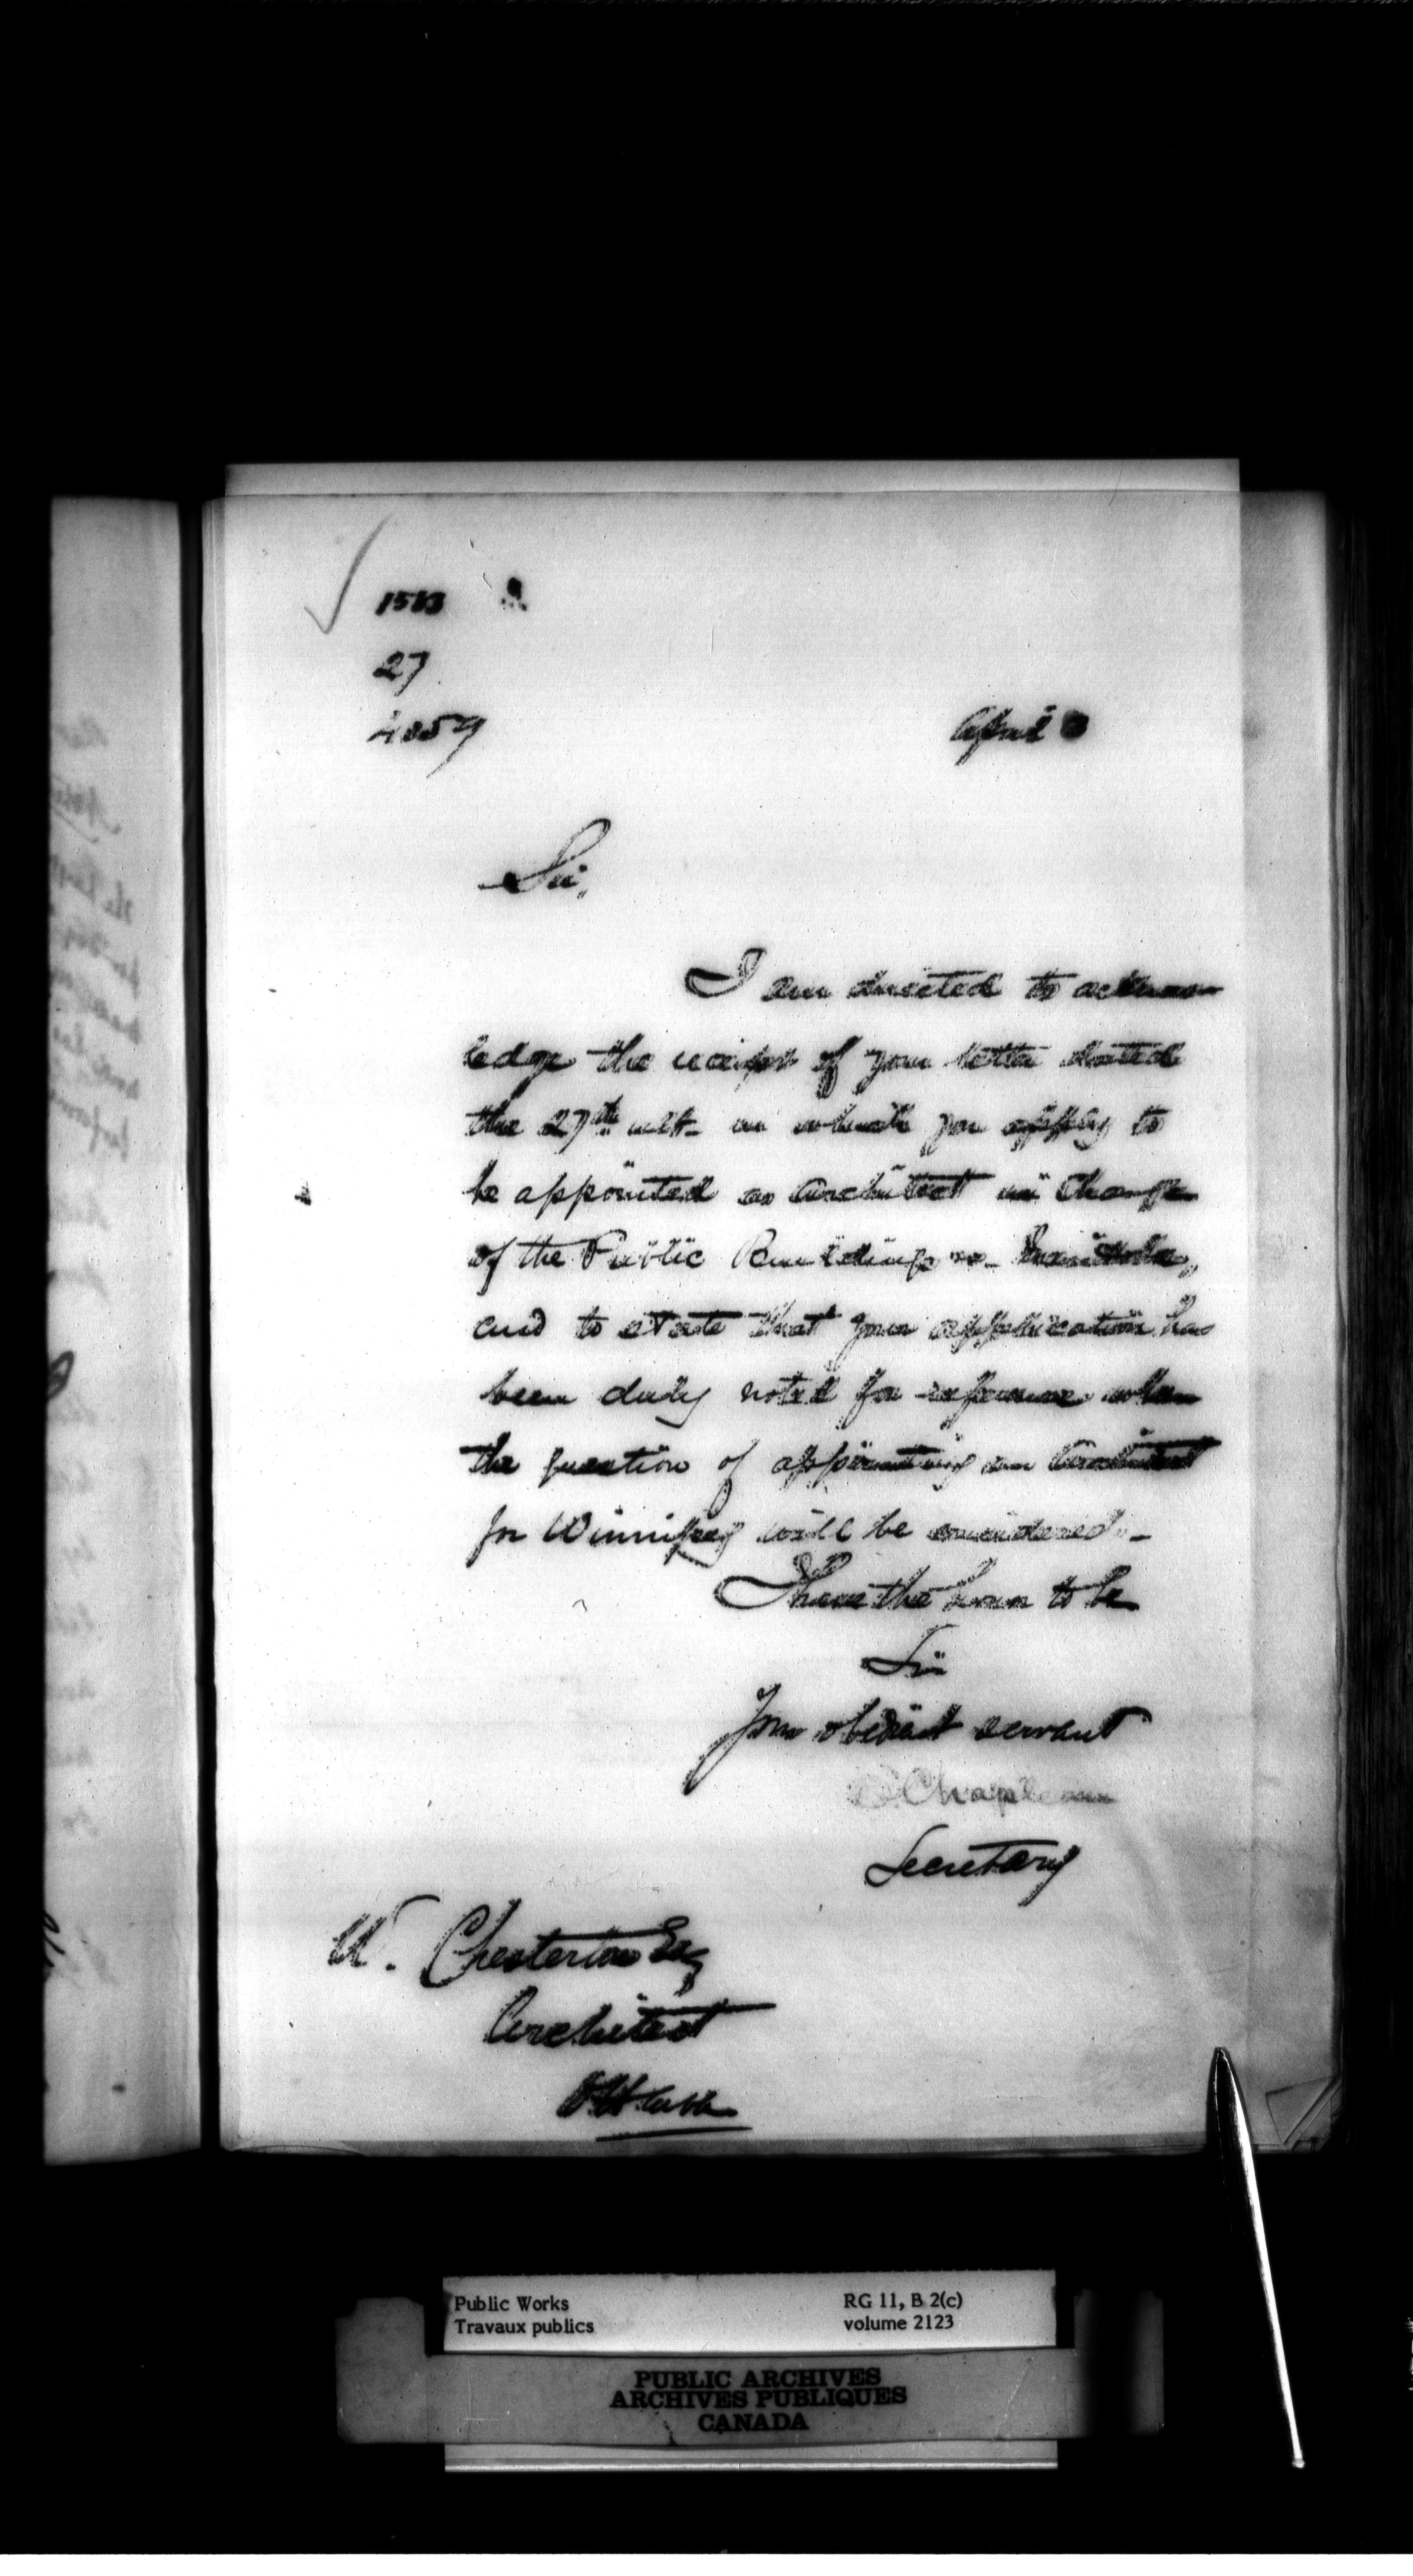 27
April
Sir,
I am directed to acknow-
ledge the receipt of your letter dated
the 27th ult. in which you apply to
be appointed as Architect in charge
of the Public Buildings in Manitoba,
and to state that your application has
been duly noted for reference when
the question of appointing an Architect
for Winnipeg will be considered.-
I have the honor to be
Sir
Your obedient servant
Chapleau
Secretary
W. Chesterton Esq
Architect
Ottawa
Public Works
Travaux publics
RG 11, B 2(c)
volume 2123
PUBLIC ARCHIVES
ARCHIVES PUBLIQUES
CANADA